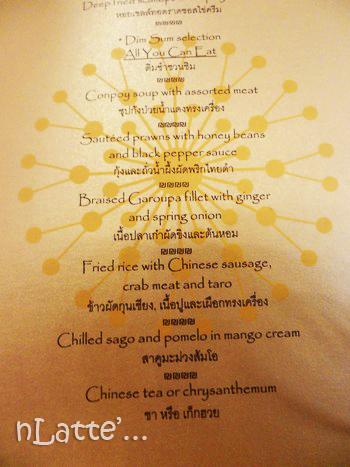 Deep fried
หอยเชลล์ทอดราดซอสไข่ครีม
• Dim Sum selection
All You Can Eat
ติ่มซำชวนชิม
Conpoy soup with assorted meat
ซุปกังป๋วยน้ำแดงทรงเครื่อง
Sautéed prawns with honey beans
and black pepper sauce
กุ้งและถั่วน้ำผึ้งผัดพริกไทยดำ
Braised Garoupa fillet with ginger
and spring onion
เนื้อปลาเก๋าผัดขิงและต้นหอม
Fried rice with Chinese sausage,
crab meat and taro
ข้าวผัดกุนเชียง, เนื้อปูและเผือกทรงเครื่อง
Chilled sago and pomelo in mango cream
สาคูมะม่วงส้มโอ
Chinese tea or chrysanthemum
ชา หรือ เก็กฮวย
nLatte'...